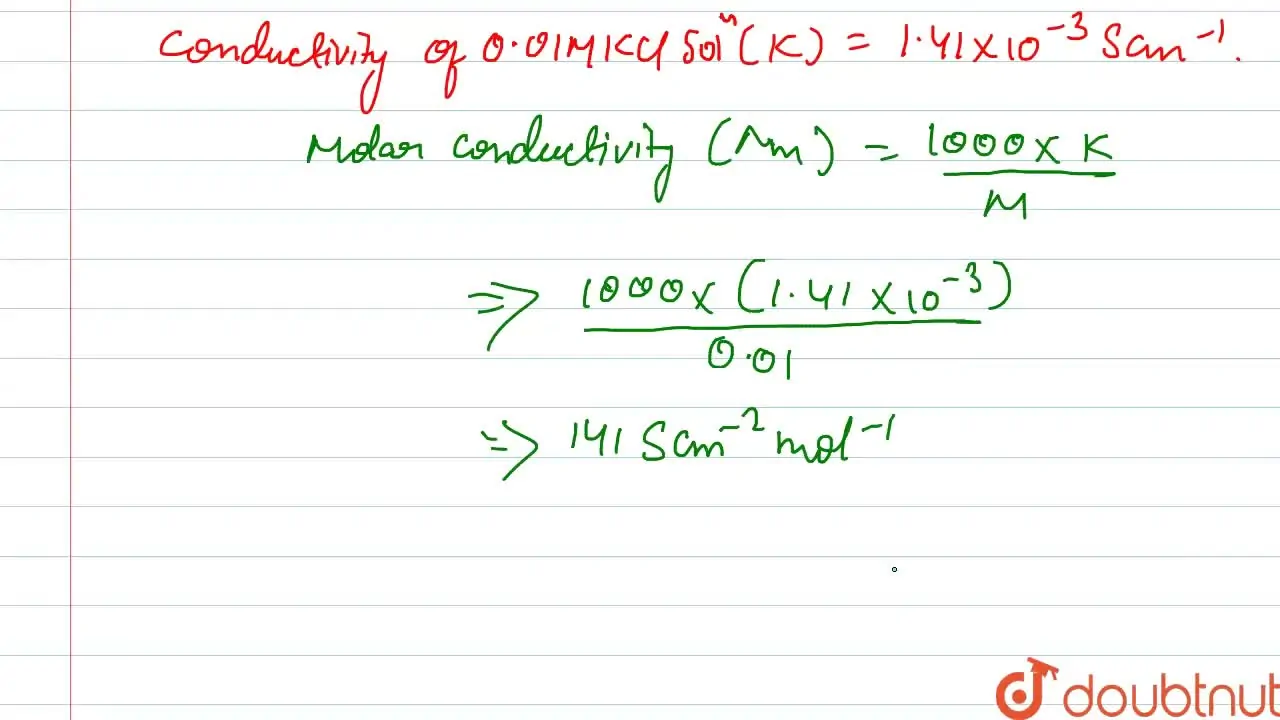 Conductivity of 0.01M KCl Solⁿ (K) = 1.41 × 10⁻³ S cm⁻¹.
Molar conductivity (Λm) = 1000 × K / M
⇒ 1000 × (1.41 × 10⁻³) / 0.01
⇒ 141 S cm⁻² mol⁻¹
doubtnut